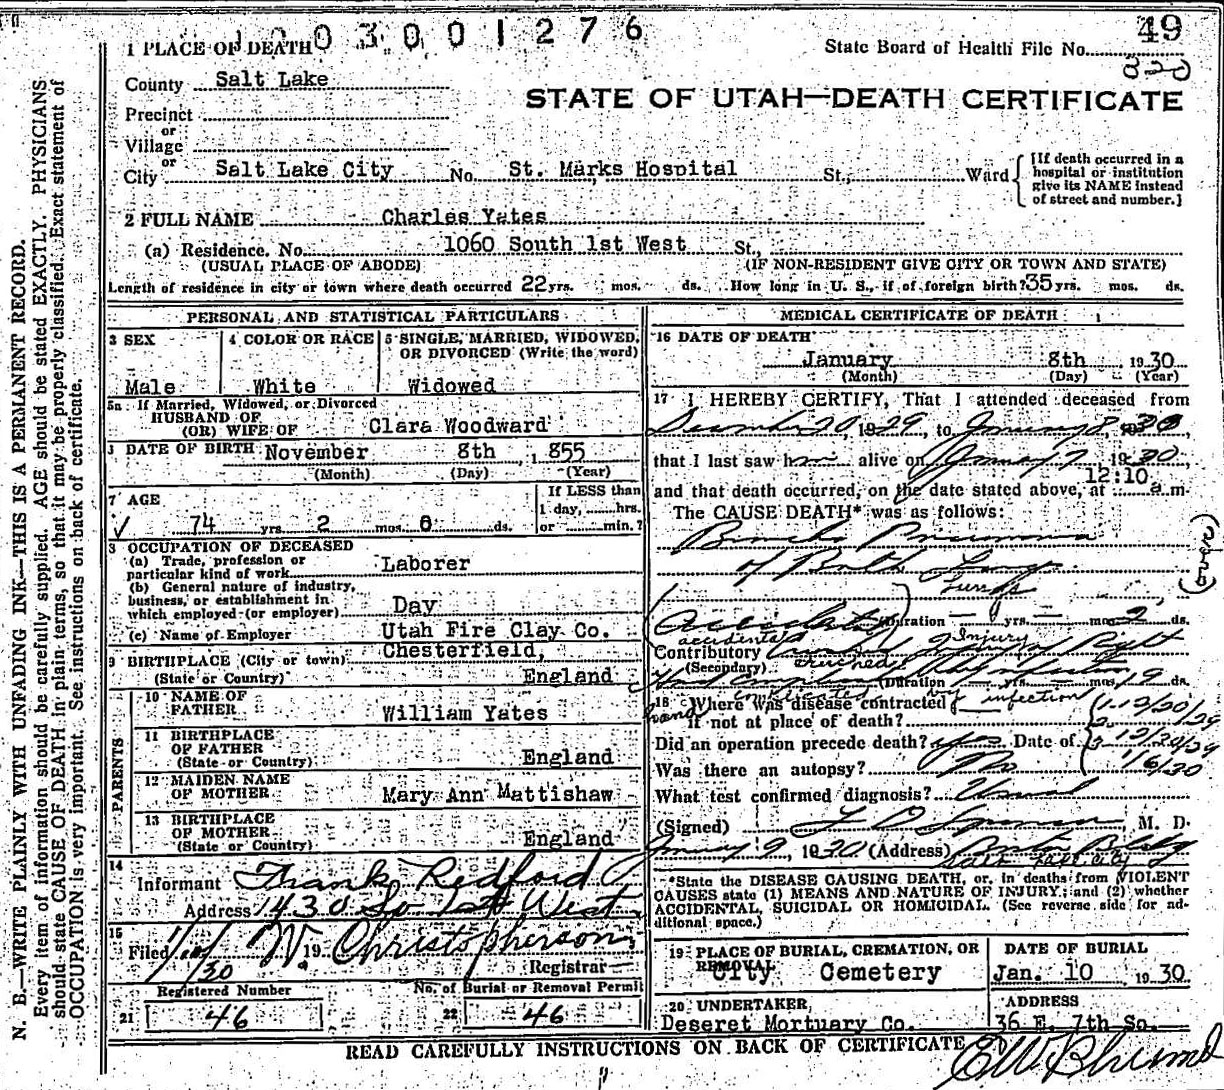 1003001276
49
1 PLACE OF DEATH
State Board of Health File No.
County Salt Lake
STATE OF UTAH—DEATH CERTIFICATE
Precinct
or
Village
or
City Salt Lake City No. St. Marks Hospital St., Ward
[If death occurred in a
hospital or institution
give its NAME instead
of street and number.]
2 FULL NAME Charles Yates
(a) Residence. No. 1060 South 1st West St.,
(USUAL PLACE OF ABODE) (IF NON-RESIDENT GIVE CITY OR TOWN AND STATE)
Length of residence in city or town where death occurred 22 yrs. mos. ds. How long in U. S., if of foreign birth? 35 yrs. mos. ds.
PERSONAL AND STATISTICAL PARTICULARS
3 SEX
Male
4 COLOR OR RACE
White
5 SINGLE, MARRIED, WIDOWED,
OR DIVORCED (Write the word)
Widowed
5a If Married, Widowed, or Divorced
HUSBAND OF
(OR) WIFE OF Clara Woodward
DATE OF BIRTH November 8th 1855
(Month) (Day) (Year)
7 AGE
74 yrs. 2 mos. 0 ds.
If LESS than
1 day, hrs.
or min.?
8 OCCUPATION OF DECEASED
(a) Trade, profession or
particular kind of work Laborer
(b) General nature of industry,
business, or establishment in
which employed (or employer) Day
(c) Name of Employer Utah Fire Clay Co.
9 BIRTHPLACE (City or town) Chesterfield,
(State or Country) England
PARENTS
10 NAME OF
FATHER William Yates
11 BIRTHPLACE
OF FATHER
(State or Country) England
12 MAIDEN NAME
OF MOTHER Mary Ann Mattishaw
13 BIRTHPLACE
OF MOTHER
(State or Country) England
14
Informant Frank Redford
Address 1430 So 1st West
15
Filed 1/10/30 19 W. Christopherson
Registrar
Registered Number
21 46
No. of Burial or Removal Permit
22 46
MEDICAL CERTIFICATE OF DEATH
16 DATE OF DEATH
January 8th 1930
(Month) (Day) (Year)
17 I HEREBY CERTIFY, That I attended deceased from
December 20, 1929, to January 8, 1930,
that I last saw him alive on January 7 1930,
and that death occurred, on the date stated above, at 12:10 a.m.
The CAUSE DEATH* was as follows:
Broncho Pneumonia
of Both Lungs
Lungs
Accident (Duration yrs. mos. 2 ds.
accidental Injury
Contributory Right
(Secondary) crushed
Hand (Duration yrs. mos. 19 ds.
complicated by infection
18 Where was disease contracted
hand if not at place of death?
1. 12/20/29
Did an operation precede death? yes Date of 2 12/20/29
3 1/6/30
Was there an autopsy? No
What test confirmed diagnosis? Usual
(Signed) M. D.
January 9, 1930 (Address) Boston Bldg
Salt Lake City
*State the DISEASE CAUSING DEATH, or, in deaths from VIOLENT
CAUSES state (1) MEANS AND NATURE OF INJURY; and (2) whether
ACCIDENTAL, SUICIDAL OR HOMICIDAL. (See reverse side for ad-
ditional space.)
19 PLACE OF BURIAL, CREMATION, OR
REMOVAL
City Cemetery
DATE OF BURIAL
Jan. 10 1930
20 UNDERTAKER,
Deseret Mortuary Co.
ADDRESS
36 E. 7th So.
READ CAREFULLY INSTRUCTIONS ON BACK OF CERTIFICATE
N. B.—WRITE PLAINLY WITH UNFADING INK—THIS IS A PERMANENT RECORD.
Every item of information should be carefully supplied. AGE should be stated EXACTLY. PHYSICIANS
should state CAUSE OF DEATH in plain terms, so that it may be properly classified. Exact statement of
OCCUPATION is very important. See instructions on back of certificate.